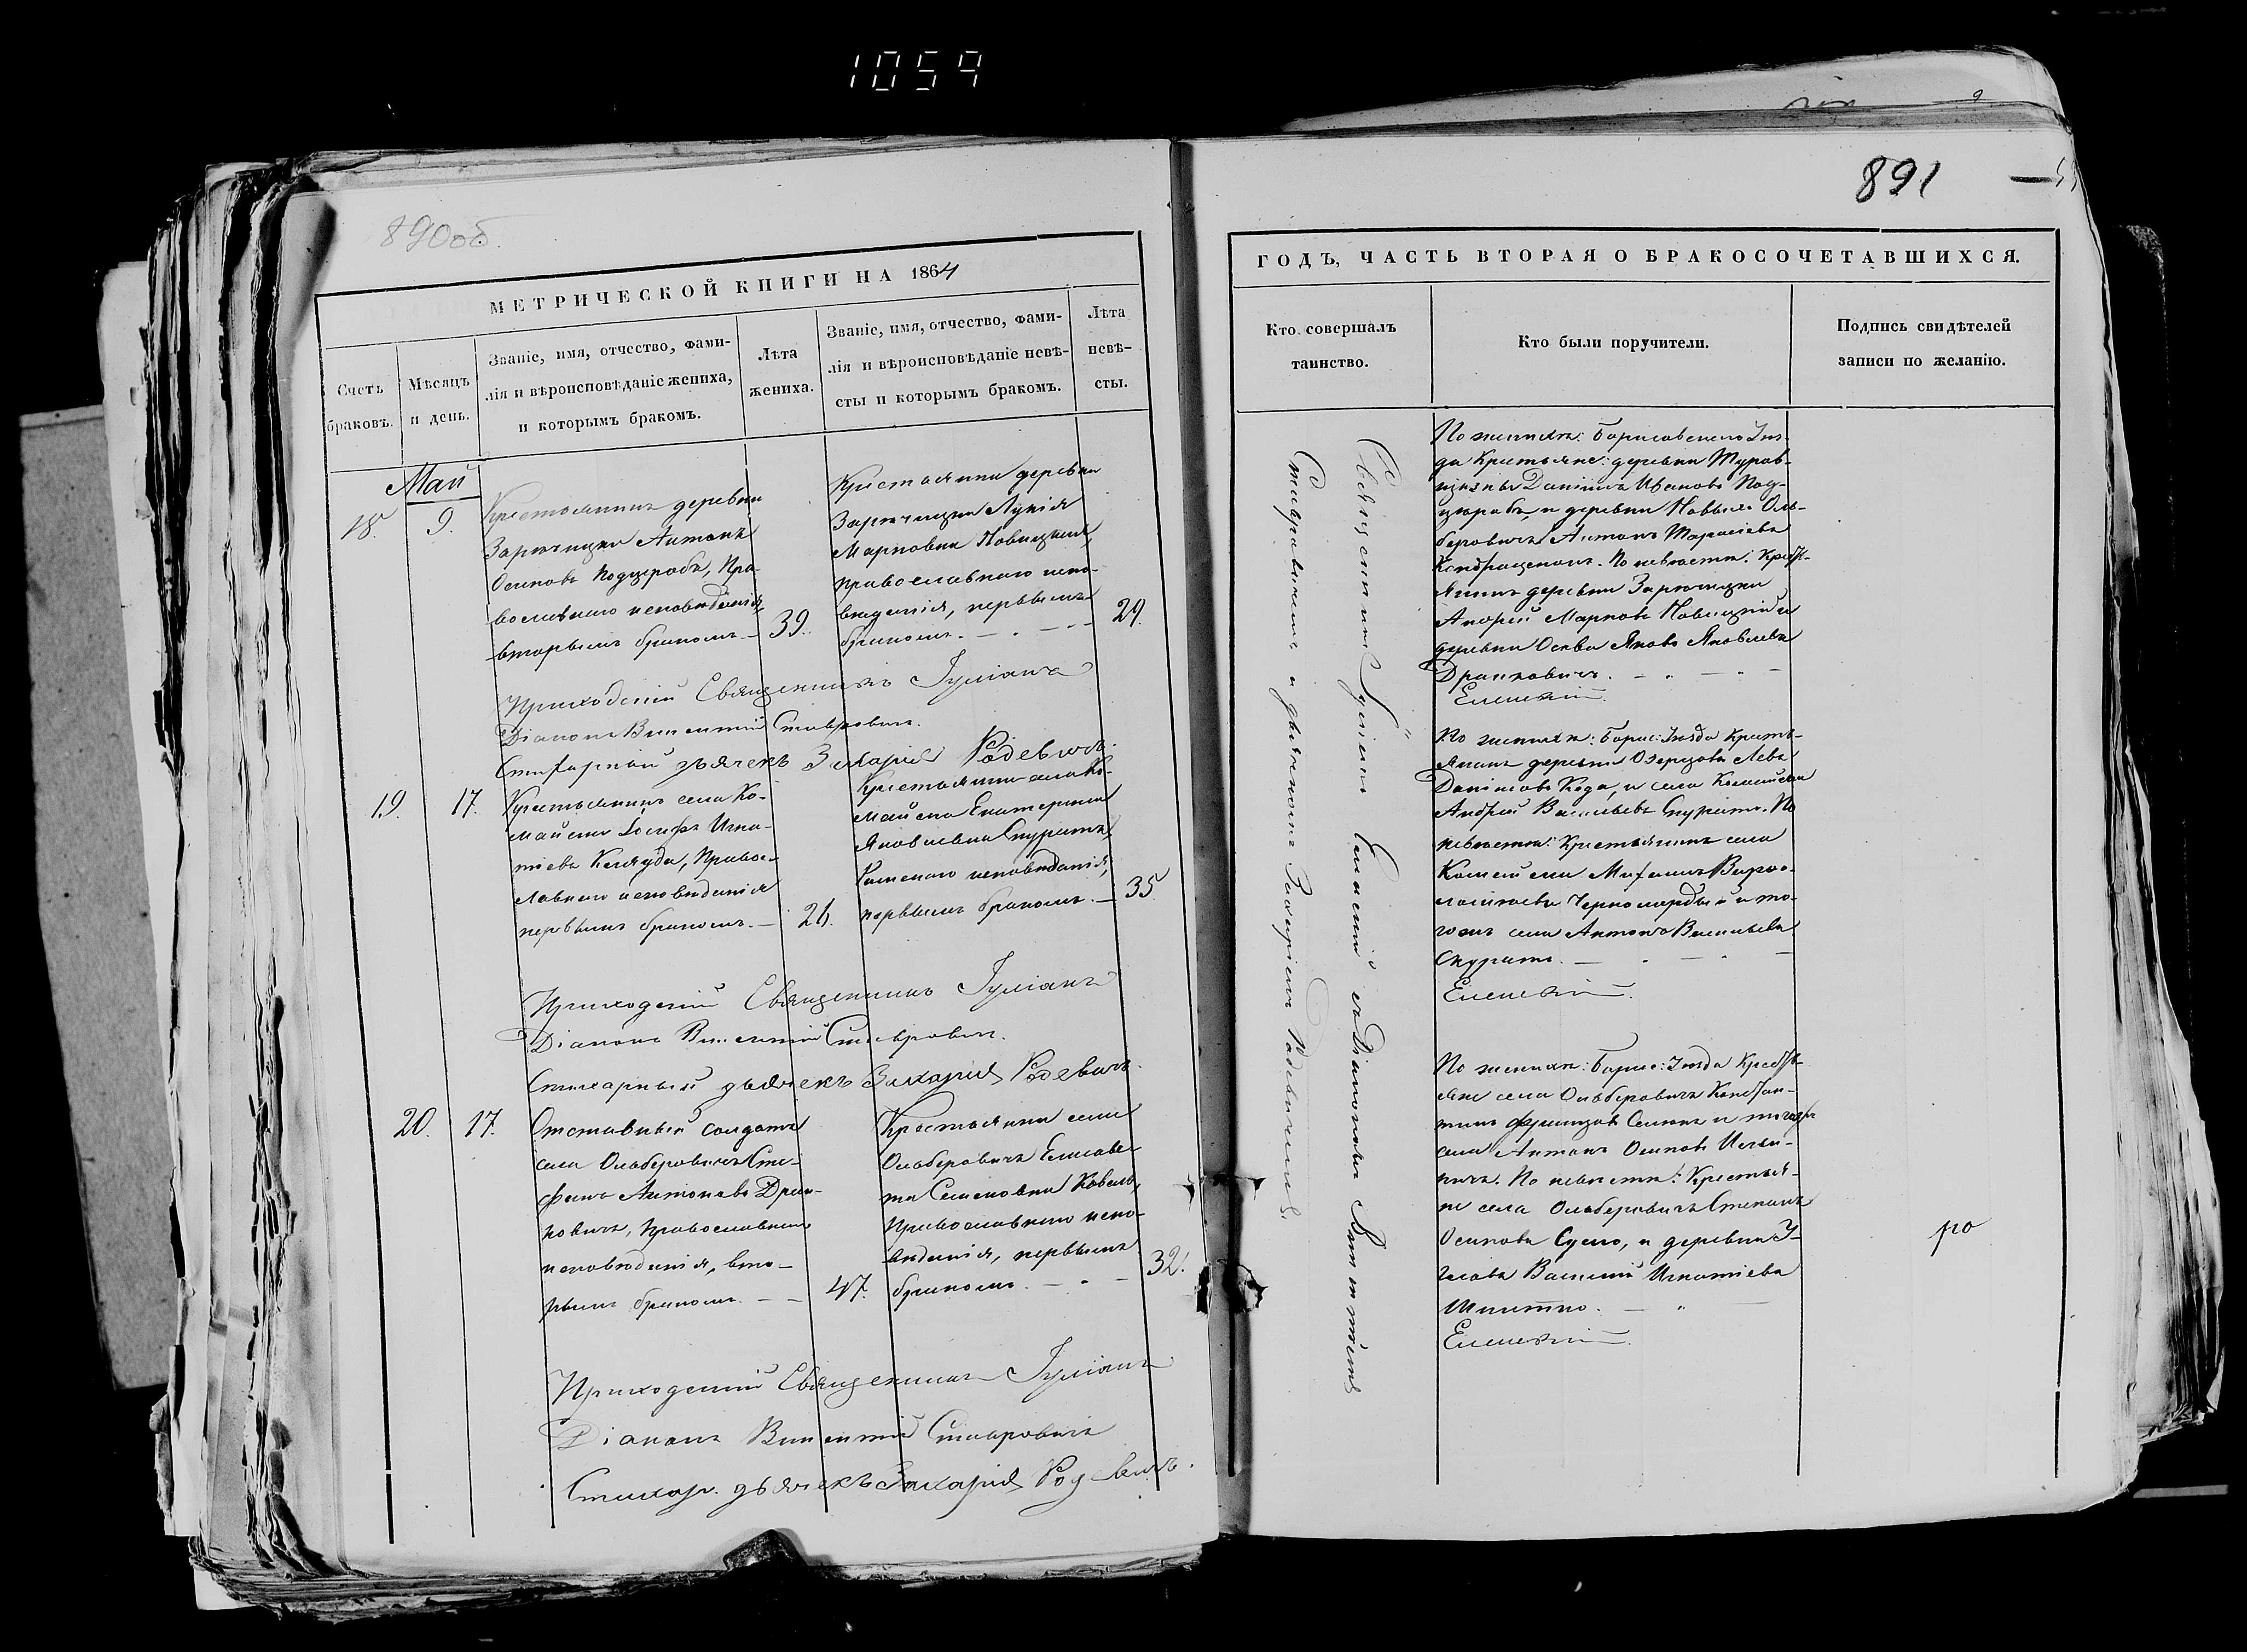 1059
890об.
МЕТРИЧЕСКОЙ КНИГИ НА 1864
Счетъ браковъ.
Мѣсяцъ и день.
Званіе, имя, отчество, фами-
лія и вѣроисповѣданіе жениха,
и которымъ бракомъ.
Лѣта
жениха.
Званіе, имя, отчество, фами-
лія и вѣроисповѣданіе невѣ-
сты и которымъ бракомъ.
Лѣта
невѣ-
сты.
Май
18.
9.
Крестьянинъ деревни
Зарѣчицки Антонъ
Осиповъ Подцероба, Пра-
вославнаго исповѣданія,
вторымъ бракомъ. —
39.
Крестьянка деревни
Зарѣчицки Лукія
Марковна Новицкая,
православнаго испо-
вѣданія, первымъ
бракомъ. — . — . —
29.
Приходскій Священникъ Іуліанъ
Діаконъ Викентій Ставровичъ.
Стихарный дьячекъ Захарія Родевичъ.
19.
17.
Крестьянинъ села Ко-
майска Іосифъ Игна-
тіевъ Коляда, Правос-
лавнаго исповѣданія
первымъ бракомъ. —
26.
Крестьянка села Ко-
майска Екатерина
Яковлевна Скуратъ,
Римскаго исповѣданія,
первымъ бракомъ. —
35
Приходскій Священникъ Іуліанъ
Діаконъ Викентій Ставровичъ.
Стихарный дьячекъ Захарія Родевичъ.
20.
17.
Отставный солдатъ
села Ольберовичъ Сте-
фанъ Антоновъ Дран-
ковичъ, Православнаго
исповѣданія, вто-
рымъ бракомъ. — —
47.
Крестьянка села
Ольберовичъ Елисаве-
та Семеновна Коваль,
Православнаго испо-
вѣданія, первымъ
бракомъ. — . —
32.
Приходскій Священникъ Іуліанъ
Діаконъ Викентій Ставровичъ
Стихар. дьячекъ Захарія Родевичъ.
891
ГОДЪ, ЧАСТЬ ВТОРАЯ О БРАКОСОЧЕТАВШИХСЯ.
Кто совершалъ
таинство.
Кто были поручители.
Подпись свидѣтелей
записи по желанію.
Священникъ Іуліанъ съ Діакономъ Викентіемъ
Ставровичемъ и дьячкомъ Захаріемъ Родевичемъ.
По женихѣ: Борисовскаго Уѣз-
да Крестьяне: деревни
Даніилъ Ивановъ Под-
цероба, и деревни Новыхъ Оль-
беровичъ Антонъ Тарасіевъ
По невѣстѣ: Кресть-
янинъ деревни Зарѣчицки
Андрей Марковъ Новицкій и
деревни Осьва Яковъ Яковлевъ
Дранковичъ. — . — . —
По женихѣ: Борис: Уѣзда Кресть-
янинъ деревни Озерцовъ Левъ
Даніиловъ Кода, и села Комайска
Андрей Васильевъ Скуратъ. По
невѣстѣ: Крестьянинъ села
Комайска Михаилъ Варѳо-
ломіевъ Черномордый и то-
гожъ села Антонъ Васильевъ
Скуратъ. — . — . —
По женихѣ: Борис: Уѣзда Кресть-
яне села Ольберовичъ Констан-
тинъ Францовъ и тогожъ
села Антонъ Осиповъ Ильи-
ничъ. По невѣстѣ: Крестья-
не села Ольберовичъ Степанъ
Осиповъ и деревни
Василій Игнатіевъ
Шпитко. — " —
ро